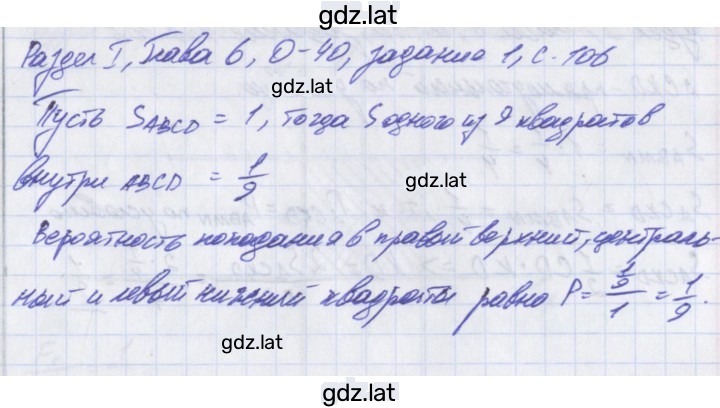 gdz.lat
Раздел I, Глава 6, О-40, задание 1, с. 106
gdz.lat
Пусть S ABCD = 1, тогда S одного из 9 квадратов
внутри ABCD = 1/9
gdz.lat
Вероятность попадания в правой верхний, централь-
ный и левый нижний квадраты равно P = 1/9 / 1 = 1/9.
gdz.lat
gdz.lat